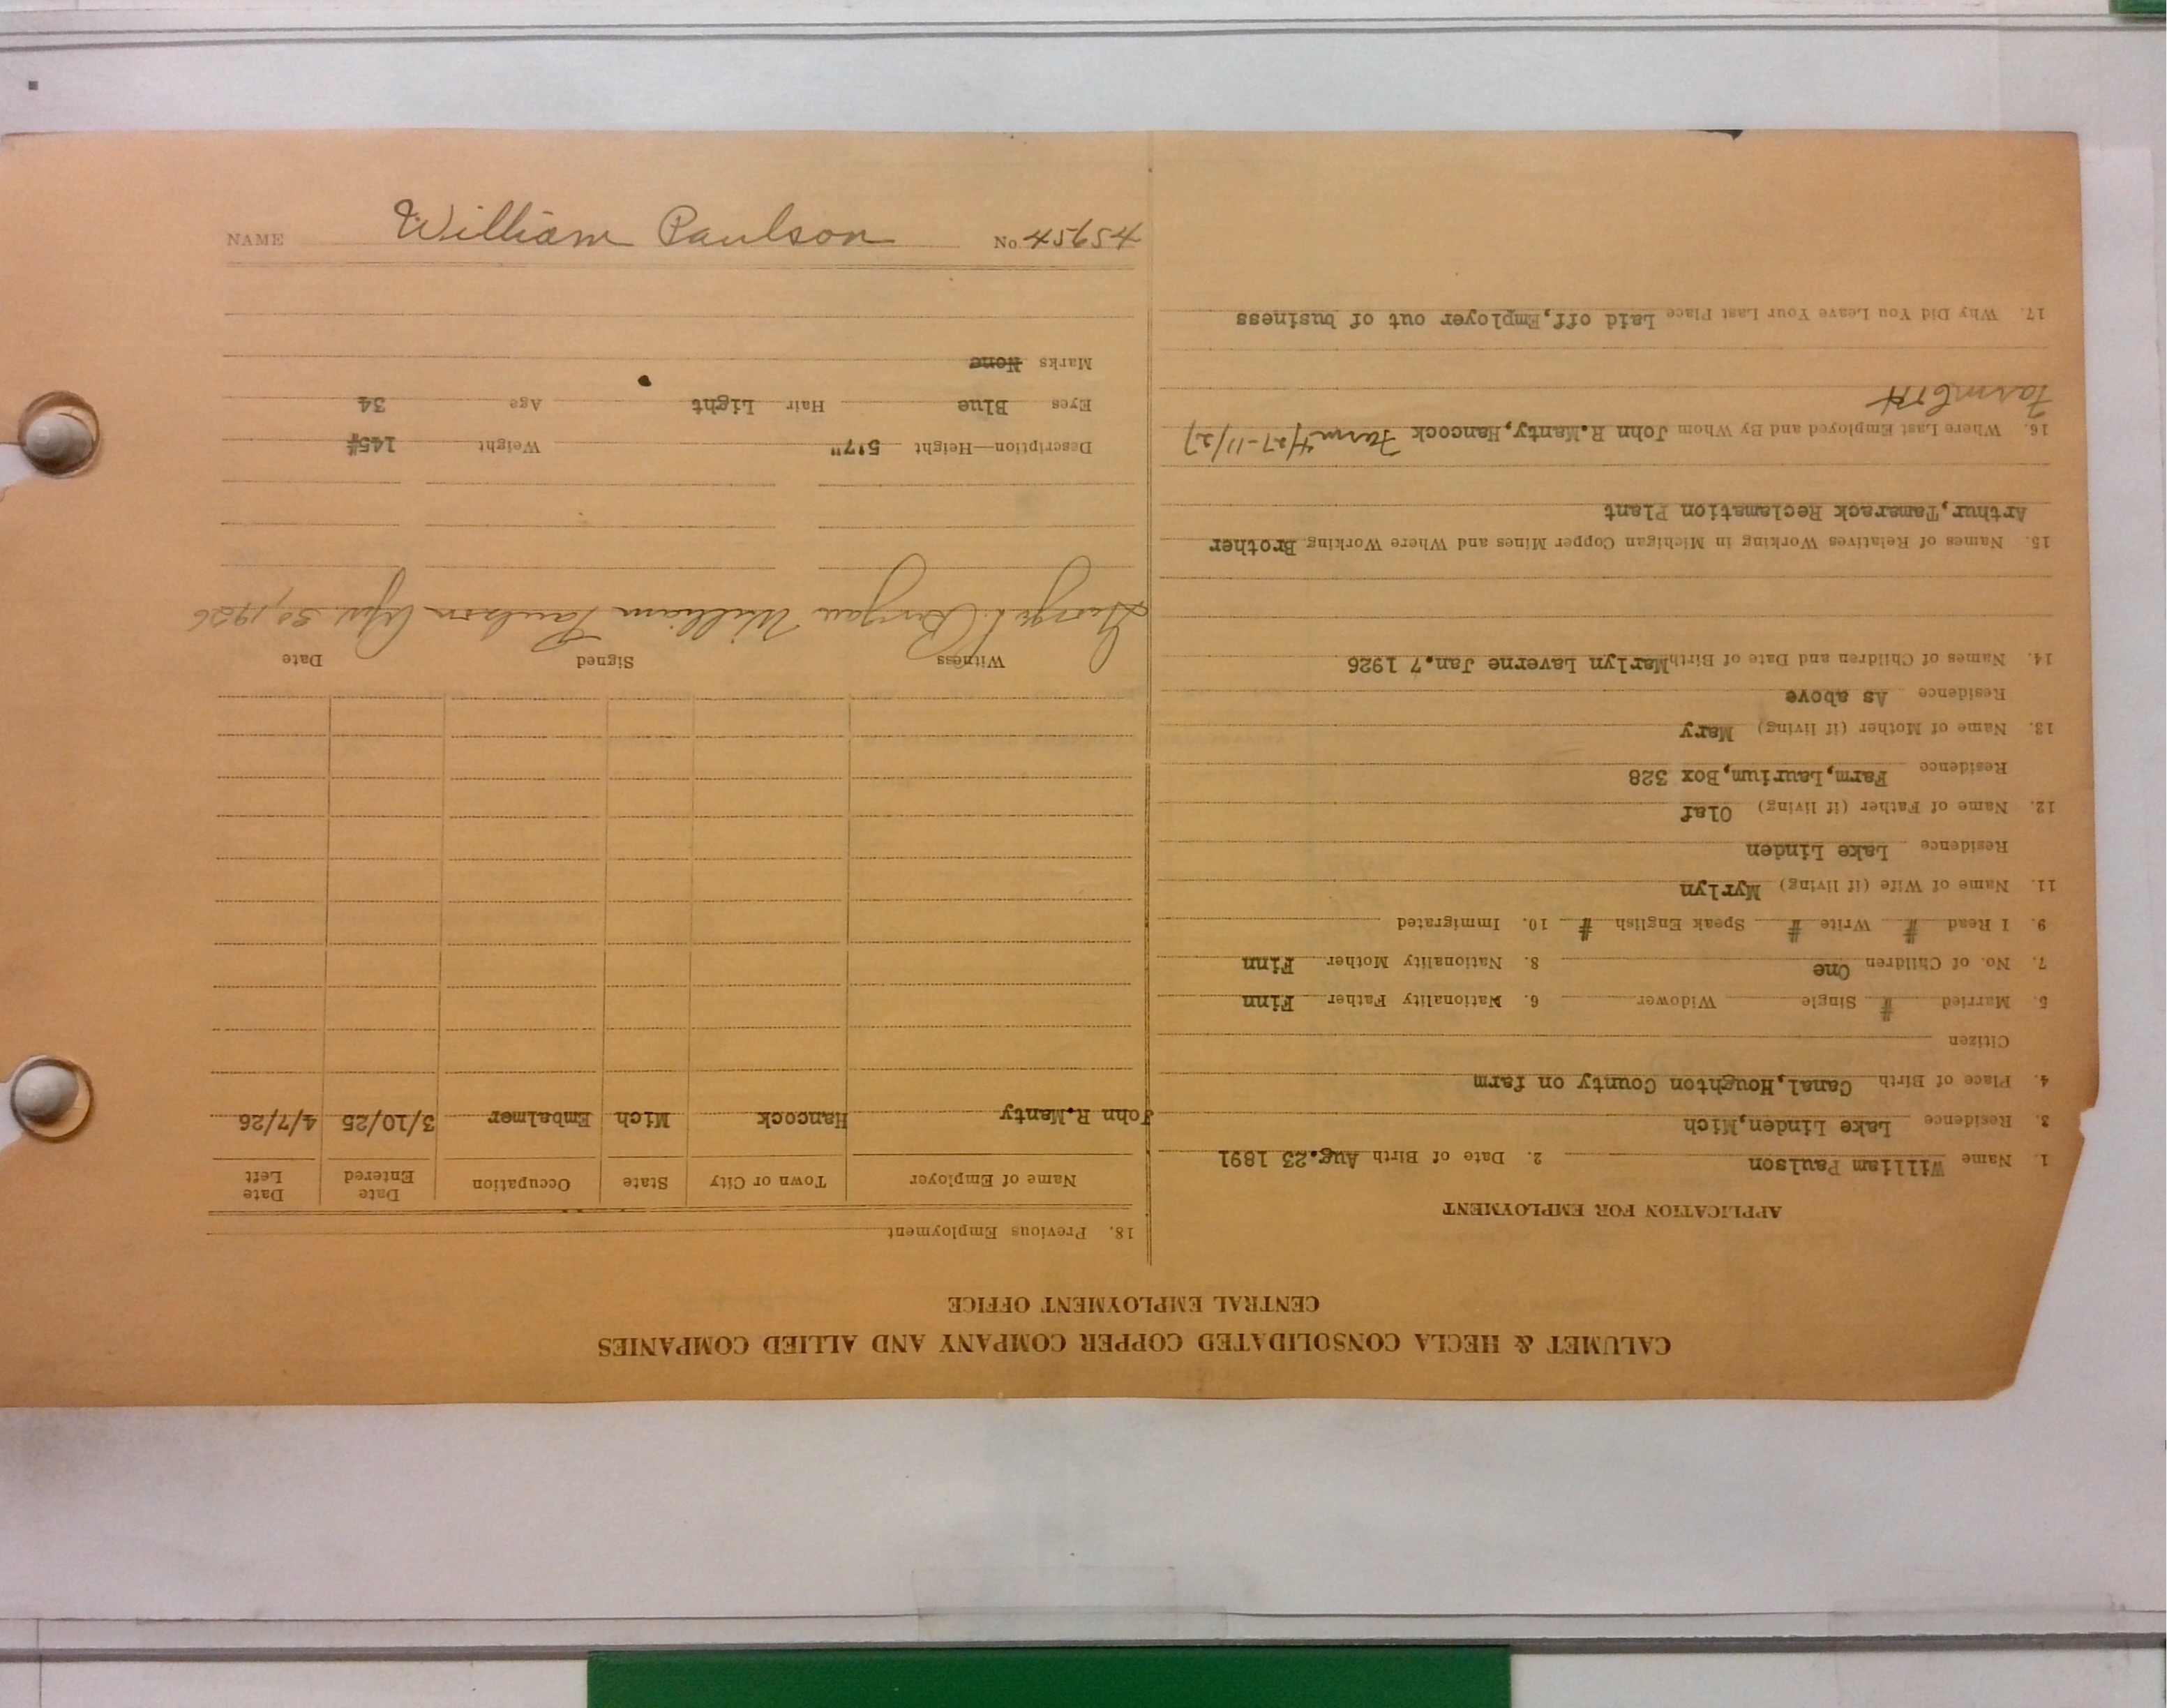 CALUMET & HECLA CONSOLIDATED COPPER COMPANY AND ALLIED COMPANIES
CENTRAL EMPLOYMENT OFFICE
APPLICATION FOR EMPLOYMENT
1. Name William Paulson 2. Date of Birth Aug.23 1891
3. Residence Lake Linden,Mich
4. Place of Birth Canal,Houghton County on farm
Citizen
5. Married # Single Widower 6. Nationality Father Finn
7. No. of Children One 8. Nationality Mother Finn
9. I Read # Write # Speak English # 10. Immigrated
11. Name of Wife (if living) Myrlyn
Residence Lake Linden
12. Name of Father (if living) Olaf
Residence Farm,Laurium,Box 328
13. Name of Mother (if living) Mary
Residence As above
14. Names of Children and Date of Birth Marlyn Laverne Jan.7 1926
15. Names of Relatives Working in Michigan Copper Mines and Where Working Brother
Arthur,Tamarack Reclamation Plant
16. Where Last Employed and By Whom John R.Manty,Hancock Farm 4/27-11/27
Farm
17. Why Did You Leave Your Last Place Laid off,Employer out of business
18. Previous Employment
Name of Employer Town or City State Occupation Date Entered Date Left
John R.Manty Hancock Mich Embalmer 3/10/25 4/7/26
Witness Signed Date
William Paulson Apr. 30, 1926
Description—Height 5'7" Weight 145#
Eyes Blue Hair Light Age 34
Marks None
NAME William Paulson No. 45654